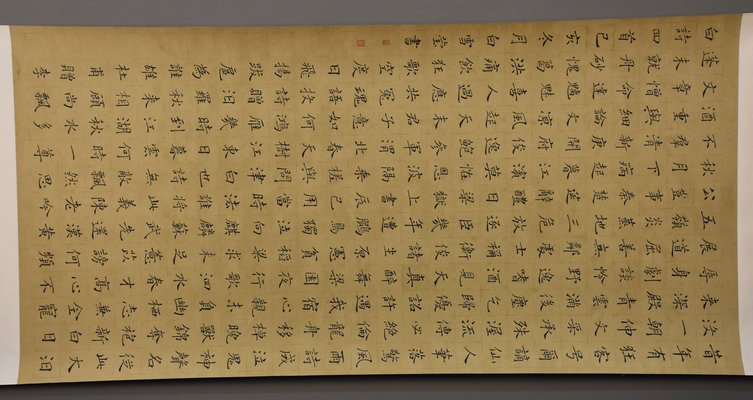 昔年有狂客号爾謫仙人筆落驚風雨詩成泣鬼神聲名從此大汩
沒一朝伸文采承殊渥流傳必絕倫龍舟移棹晚獸錦奪袍新白日
來深殿青雲滿後塵乞歸優詔許遇我宿心親未負幽棲志兼全寵
辱身劇談憐野逸嗜酒見天真醉舞梁園夜行歌泗水春才高心不
展道屈善無鄰處士禰衡俊諸生原憲貧稻梁求未足薏苡謗何頻
五嶺炎蒸地三危放逐臣幾年遭鵩鳥獨泣向麒麟蘇武先還漢黃
公豈事秦楚筵辭醴日梁獄上書辰已用當時法誰將此義陳老吟
秋月下病起暮江濱莫怪恩波隔乘槎與問津白也詩無敵飄然思
不羣清新庾開府俊逸鮑參軍渭北春天樹江東日暮雲何時一尊
酒重與細論文涼風起天末君子意如何鴻雁幾時到江湖秋水多
文章憎命達魑魅喜人過應共冤魂語投詩贈汨羅秋來相顧尚飄
蓬未就丹砂愧葛洪痛飲狂歌空度日飛揚跋扈為誰雄杜甫贈李
白詩四首己亥冬月白雪堂書